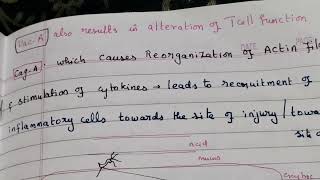 Vac-A also results in alteration of T cell function
Cag-A: which causes Reorganization of Actin Fil
& stimulation of cytokines → leads to recruitment of
inflammatory cells towards the site of injury / towa
site o
acid
mucus